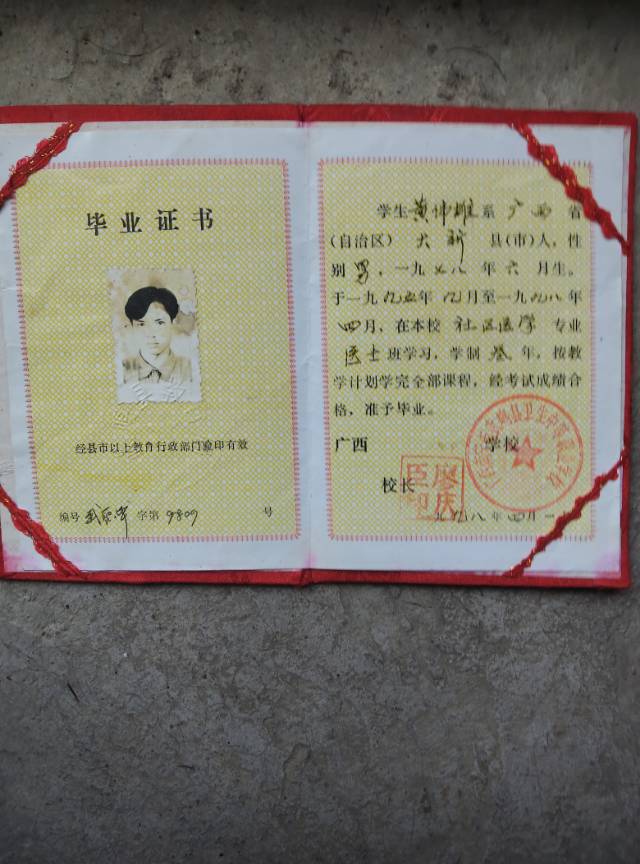 毕业证书
经县市以上教育行政部门验印有效
编号 字第 9809 号
学生黄伟雄系广西省
(自治区)大新县(市)人,性
别男,一九七八年六月生。
于一九九五年九月至一九九八年
四月,在本校社区医学专业
医士班学习,学制叁年,按教
学计划学完全部课程,经考试成绩合
格,准予毕业。
广西 学校
校长
廖庆
臣印
九九八年四月一